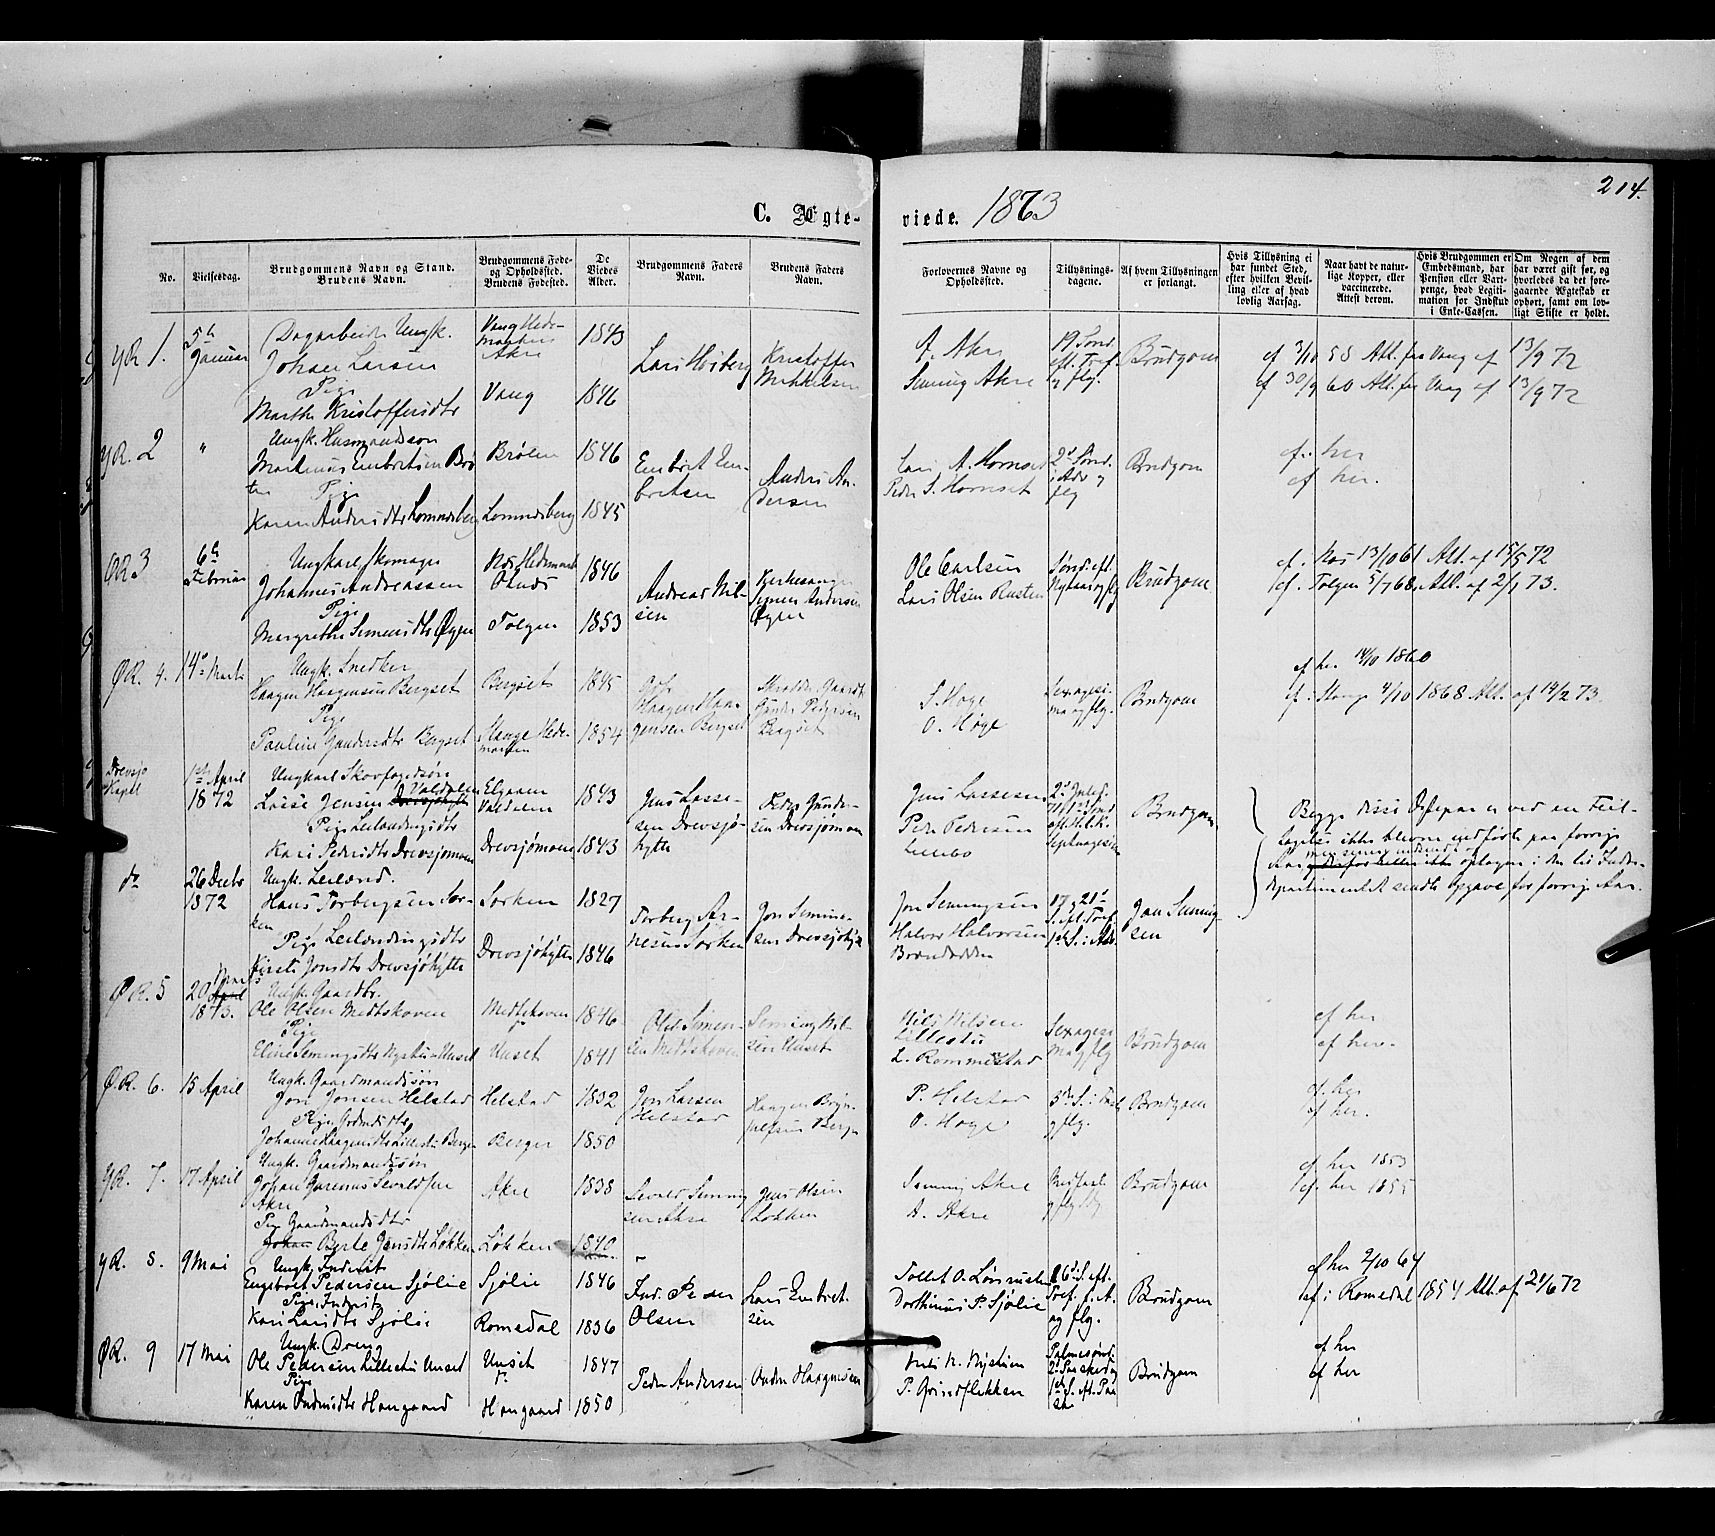 214.
C. Ægte-
viede. 1873
No.
Vielsesdag.
Brudgommens Navn og Stand.
Brudens Navn.
Brudgommens Føde-
og Opholdssted.
Brudens Fødested.
De
Viedes
Alder.
Brudgommens Faders
Navn.
Brudens Faders
Navn.
Forlovernes Navne og
Opholdssted.
Tillysnings-
dagene.
Af hvem Tillysningen
er forlangt.
Hvis Tillysning ei
har fundet Sted,
efter hvilken Bevil-
ling eller af hvad
lovlig Aarsag.
Naar havt de natur-
lige Kopper, eller
vaccinerede.
Attest derom.
Hvis Brudgommen er
Embedsmand, har
Pension eller Vart-
penge, hvad Legiti-
mation for Indskud
i Enke-Cassen.
Om Nogen af dem
har været gift før, og
hvorledes da det fore-
gaaende Ægteskab er
ophørt, samt om lov-
ligt Skifte er holdt.
YR 1.
5te
Januar
Dagarbeider Ungk.
Johan Larsen
Pige
Marthe Kristoffersdtr
Vang Hede-
marken
Akre
Vang
1843
1846
Lars Høiberg
Kristoffer
Mikkelsen
A. Akre
Semming Akre
19 Sønd
eft. Tref.
og flg.
Brudgom
cf 3/10 58 Att. fra Vang af 13/9 72
cf 30/9 60 Att. fra Vang af 13/9 72
YR. 2
"
Ungk. Husmandssøn
Martinus Embretsen Brø
ten
Pige
Karen Andersdtr Lomnesberg
Brøten
Lomnesberg
1846
1845
Embret Em-
bretsen
Anders An-
dersen
Lars A. Hornset
Peder S. Hornset
2d Sønd.
i Adv og
flg
Brudgom
cf. her
cf her.
ØR. 3
6te
Februar
Ungkarl Skomager
Johannes Andreassen
Pige
Margrethe Simensdtr Øyen
Næs Hedemark
Tolgen
1846
1853
Andreas Nil-
sen
Kirkesanger
Simen Andersen
Øyen
Ole Carlsen
Lars Olsen Rusten
Sønd. eft.
Nytaar og flg
Brudgom
cf. Næs 13/10 61 Att. af 15/5 72
cf. Tolgen 5/7 68, Att. af 2/1 73.
ØR. 4.
14de Marts
Ungk. Snedker
Haagen Haagensen Bergset
Pige
Pauline Gundersdtr Bergset
Bergset
Stange Hede-
marken
1845
1854
Haagen Haa-
gensen Bergset
Skrædder Gaardbr
Gunder Pedersen
Bergset
S. Hoge
O. Hoge
Sexagesi-
ma og flg.
Brudgom
cf. her 14/10 1860
cf. Stange 4/10 1868 Att. af 14/2 73.
Drevsjø
Kapel
1ste April
1872
Ungkarl Skovfogedsøn
Lasse Jensen Drevsjøhytte Valdalen
Pige Leilændingsdtr
Kari Pedersdtr Drevsjømoen
Elgaaen
Valdalen
Drevsjømoen
1843
1843
Jens Lasse-
sen Drevsjø-
hytte
Peder Gunder-
sen Drevsjømoen
Jens Lassesen
Peder Pedersen
Lillebo
2d Juled.
71 1ste Sønd
eft. H.3.K.
Septuagesima
Brudgom
Begge disse Ægtepar er ved en Feil-
tagelse ikke blevne indførte paa forrige
Aar men ere medtagne i den til Inder-
departementet sendte Opgave for forrige Aar.
do
26 Decbr
1872
Ungk. Leilænd.
Hans Torbergsen Sor-
ken
Pige Leilændingsdtr
Kirsti Jonsdtr Drevsjøhytte
Sorken
Drevsjøhytte
1827
1846
Torberg Ar-
nesen Sorken
Jon Semming-
sen Drevsjøhytte
Jon Semmingsen
Halvor Halvorsen
Brændvolden
17 og 21d
S. ef. Tref.
1ste S. i Adv.
Jon Semming-
sen
ØR. 5
20 April Marts
1873.
Ungk. Gaardbr.
Ole Olsen Medtskoven
Pige
Eline Semmingsdtr Nystu-Unset
Medtskoven
Unset
1846
1841
Ole Simen-
sen Medtskoven
Semming Nil-
sen Unset
Nils Nilsen
Lillestu
L. Rommestad
Sexagesi
ma og flg
Brudgom
cf her
cf her.
Ø.R. 6.
15 April
Ungk. Gaardmandssøn
Jon Jonsen Helstad
Pige Gdmdsdtr
Johanne Haagensdtr Lillestu Berger
Helstad
Berger
1832
1850
Jon Larsen
Helstad
Haagen Bryn-
julfsen Berger
P. Helstad
O. Hoge
3die S. i Faste
og flg.
Brudgom
cf. her
cf her.
YR. 7.
17 April
Ungk. Gaardmandssøn
Johan Gjermus Sevaldsen
Akre
Pige Gaardmandsdtr
Johan Berte Jensdtr Løkken
Akre
Løkken
1838
1840
Sevald Semming
sen Akre
Jens Olsen
Løkken
Semming Akre
A. Akre
Midfaste
og flg Sdg
Brudgom
cf. her 1853
cf. her 1855
YR. 8.
9 Mai
Ungk. Inderst
Engebret Pedersen Sjølie
Pige, Inderst
Kari Larsdtr Sjølie
Sjølie
Romedal
1846
1836
Ind. Peder
Olsen
Lars Embret-
sen
Tollef O. Lønrusten
Dorthinus P. Sjølie
26d S. eft.
Tref. f. A.
og flg.
Brudgom
cf her 9/10 64
cf i Romedal 1854 Att. af 21/6 72
ØR. 9
17 Mai
Ungk. Dreng
Ole Pedersen Lillestu Unset
Pige
Karen Ondersdtr Haugaard
Unset
Haugaard
1847
1850
Peder Andersen
Onder Haagensen
Nils N. Nystuen
P. Grindflekken
Palmesønd.
2d Paaskedag
1ste S. ef. Paa
ske
Brudgom
cf her
cf her